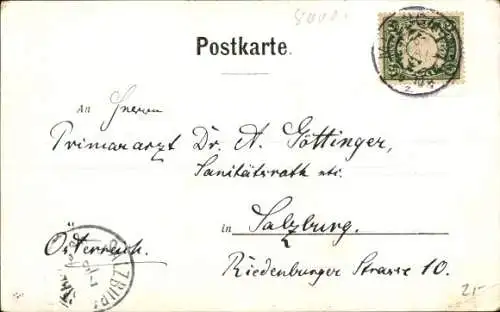 5000.
Postkarte.
An Herrn
Primararzt Dr. A. Göttinger,
Sanitätsrath etc.
in Salzburg.
Österreich.
Riedenburger Strasse 10.
SALZBURG
21-